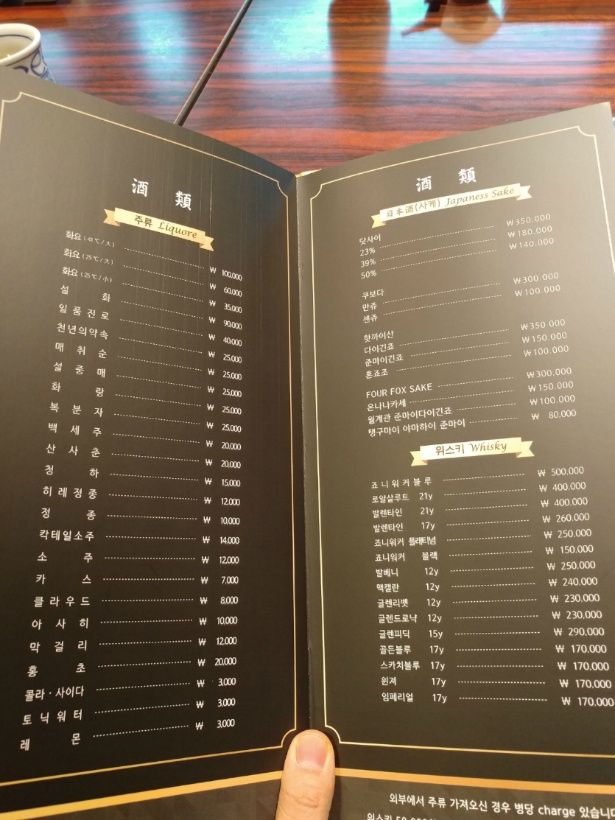 酒 類
주류 Liquore
화요 (41℃/大) ₩ 100,000
화요 (25℃/大) ₩ 60,000
화요 (25℃/小) ₩ 35,000
설 화 ₩ 90,000
일품진로 ₩ 40,000
천년의약속 ₩ 25,000
매 취 순 ₩ 25,000
설 중 매 ₩ 25,000
화 랑 ₩ 25,000
복 분 자 ₩ 25,000
백 세 주 ₩ 20,000
산 사 춘 ₩ 20,000
청 하 ₩ 15,000
히레정종 ₩ 12,000
정 종 ₩ 10,000
칵테일소주 ₩ 14,000
소 주 ₩ 12,000
카 스 ₩ 7,000
클라우드 ₩ 8,000
아 사 히 ₩ 10,000
막 걸 리 ₩ 12,000
홍 초 ₩ 20,000
콜라·사이다 ₩ 3,000
토닉워터 ₩ 3,000
레 몬 ₩ 3,000
酒 類
日本酒(사케) Japaness Sake
닷사이
23% ₩350,000
39% ₩180,000
50% ₩140,000
쿠보다
만쥬 ₩300,000
센쥬 ₩100,000
핫까이산
다이긴죠 ₩350,000
준마이긴죠 ₩150,000
혼죠조 ₩100,000
FOUR FOX SAKE ₩300,000
온나나카세 ₩150,000
월계관 준마이다이긴죠 ₩100,000
탱구마이 야마하이 준마이 ₩ 80,000
위스키 Whisky
죠니워커블루 ₩ 500,000
로얄살루트 21y ₩ 400,000
발렌타인 21y ₩ 400,000
발렌타인 17y ₩ 260,000
죠니워커 플래티넘 ₩ 250,000
죠니워커 블랙 ₩ 150,000
발베니 12y ₩ 250,000
맥캘란 12y ₩ 240,000
글렌리벳 12y ₩ 230,000
글렌드로낙 12y ₩ 230,000
글렌피딕 15y ₩ 290,000
골든블루 17y ₩ 170,000
스카치블루 17y ₩ 170,000
윈져 17y ₩ 170,000
임페리얼 17y ₩ 170,000
외부에서 주류 가져오신 경우 병당 charge 있습니다